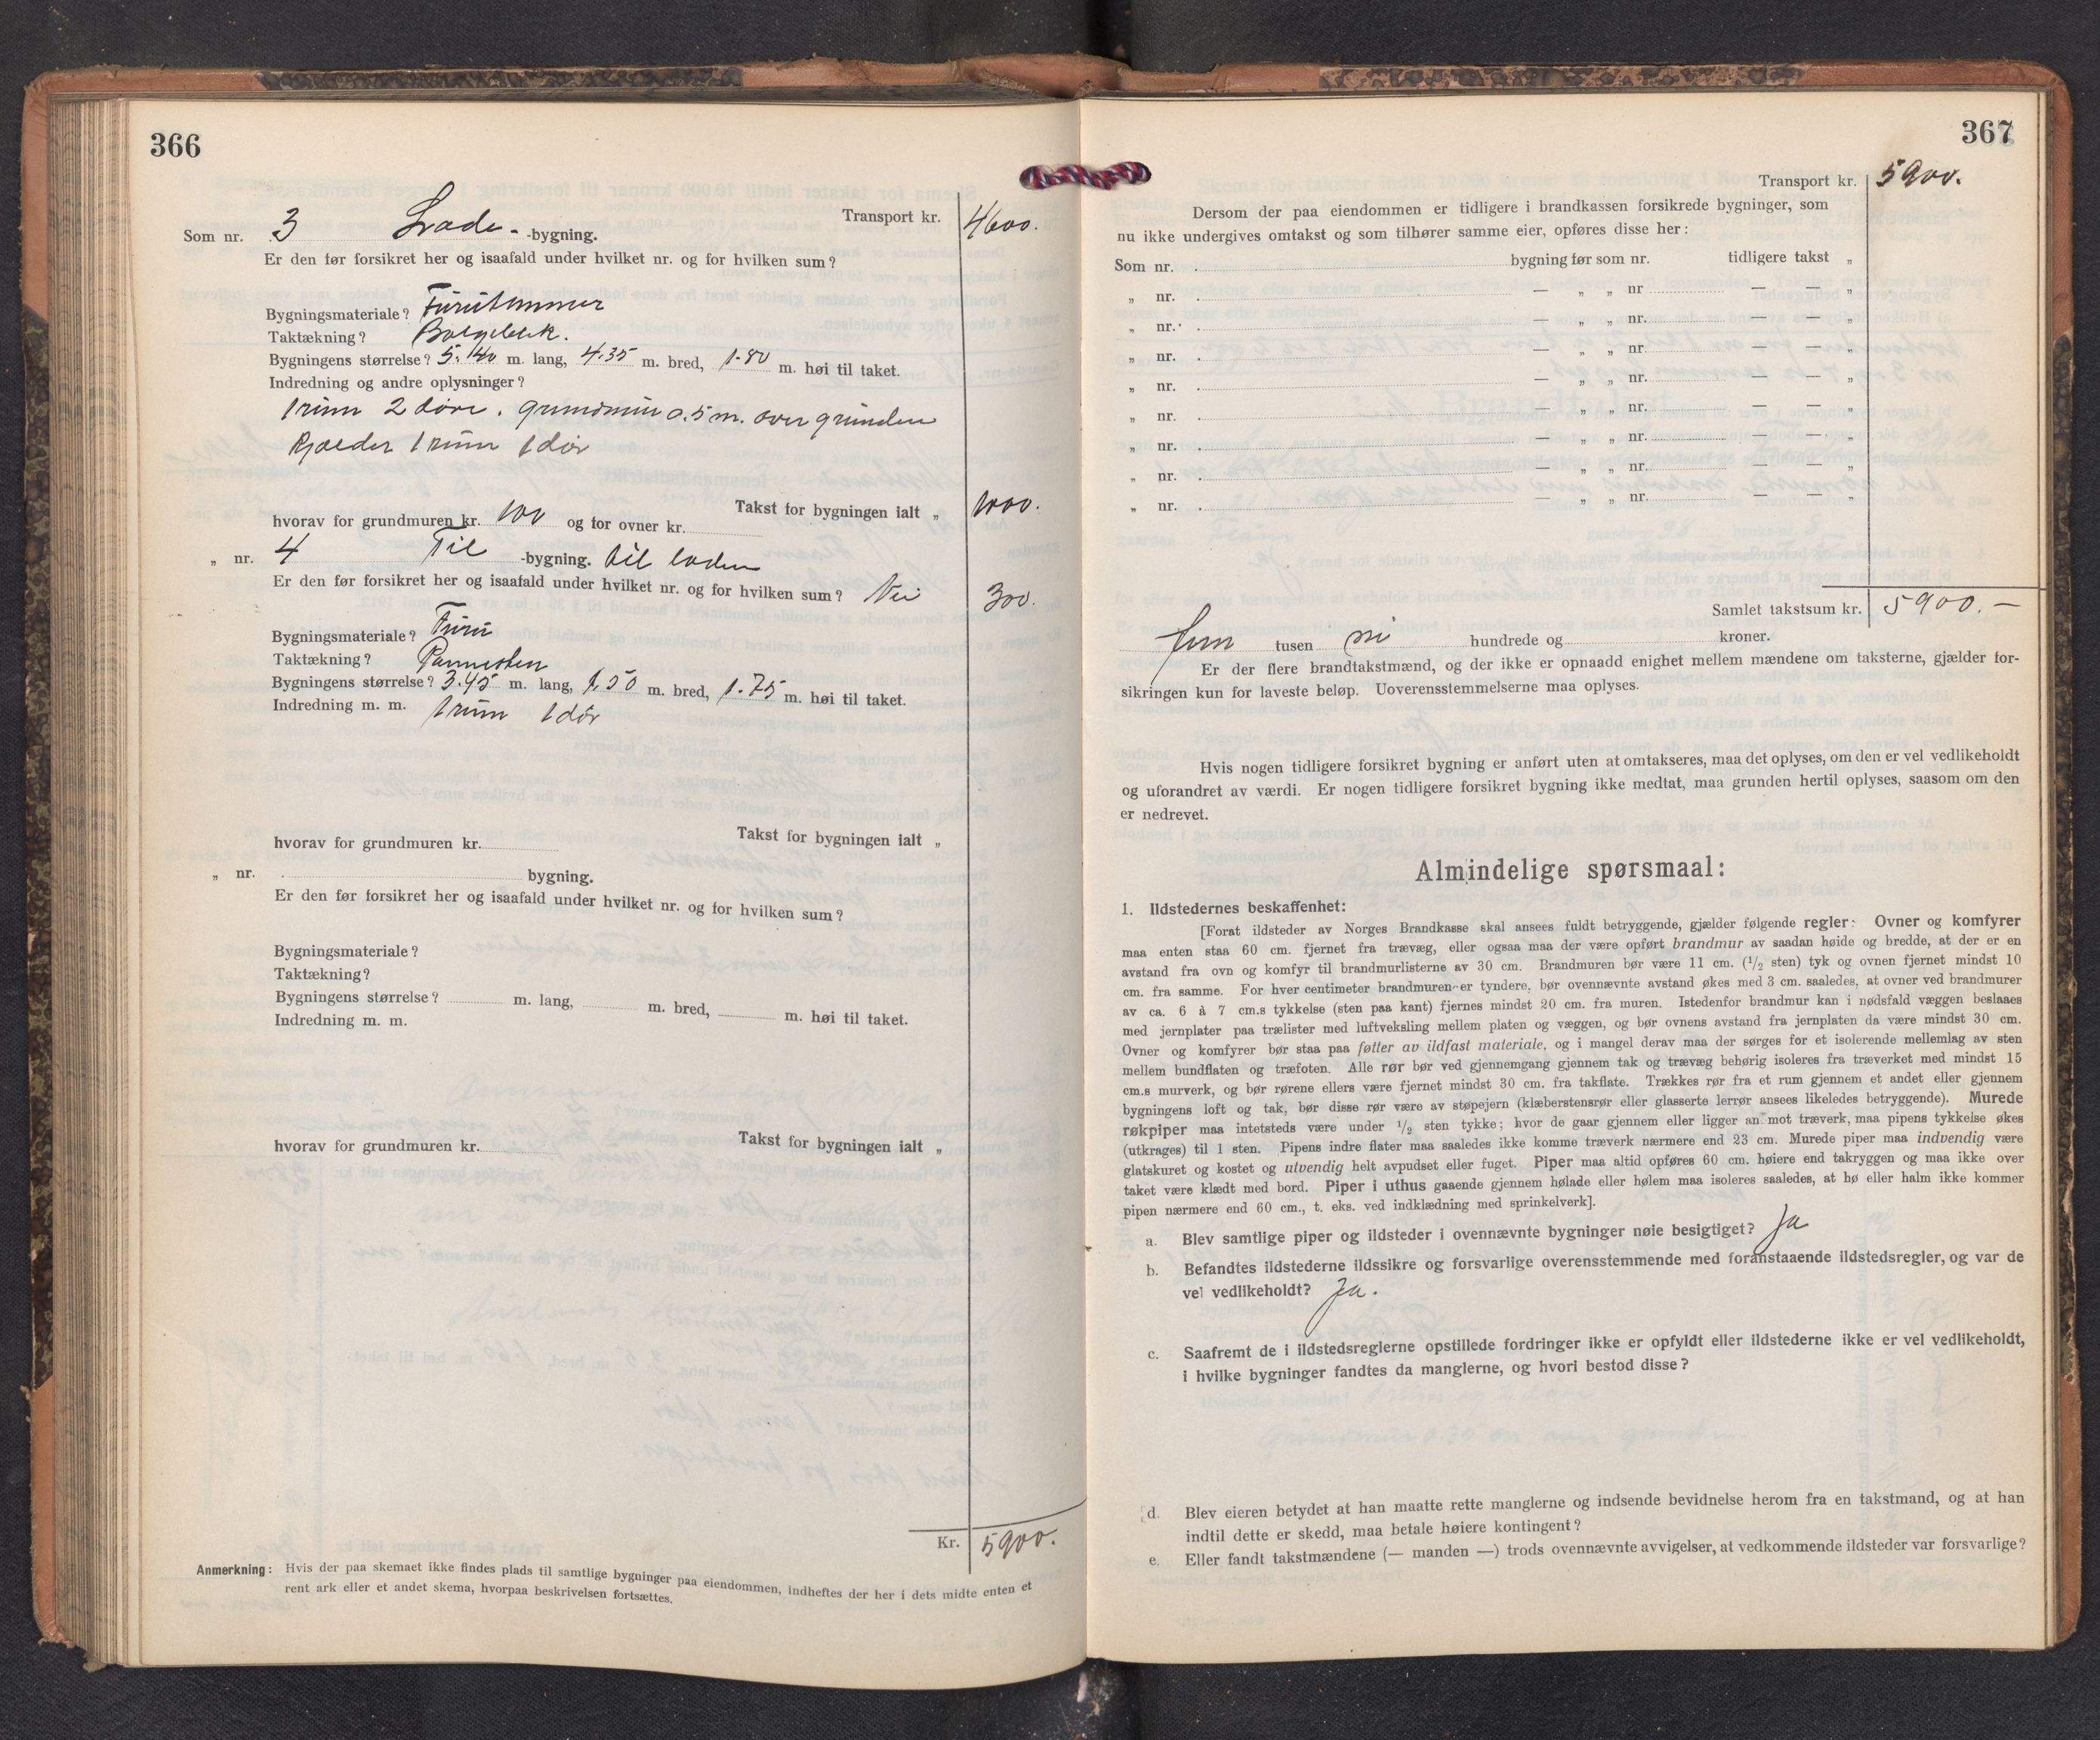 366
Transport kr. 4600.
Som nr. 3 Lade- -bygning.
Er den før forsikret her og isaafald under hvilket nr. og for hvilken sum?
Bygningsmateriale? Furutømmer
Taktækning? Bølgeblek.
Bygningens størrelse? 5.40 m. lang, 4.35 m. bred, 1.80 m. høi til taket.
Indredning og andre oplysninger?
1 rum 2 døre. grundmur 0.5 m. over grunden
Kjælder 1 rum 1 dør
Takst for bygningen ialt „ 1000.
hvorav for grundmuren kr. 100 og for ovner kr.
„ nr. 4 Til -bygning. til laden
Er den før forsikret her og isaafald under hvilket nr. og for hvilken sum? Nei 300.
Bygningsmateriale? Furu
Taktækning? Pannesten
Bygningens størrelse? 3.45 m. lang, 1.50 m. bred, 1.75 m. høi til taket.
Indredning m. m. 1 rum 1 dør
Takst for bygningen ialt „
hvorav for grundmuren kr.
„ nr. bygning.
Er den før forsikret her og isaafald under hvilket nr. og for hvilken sum?
Bygningsmateriale?
Taktækning?
Bygningens størrelse? m. lang, m. bred, m. høi til taket.
Indredning m. m.
Takst for bygningen ialt „
hvorav for grundmuren kr.
Kr. 5900.
Anmerkning: Hvis der paa skemaet ikke findes plads til samtlige bygninger paa eiendommen, indheftes der her i dets midte enten et
rent ark eller et andet skema, hvorpaa beskrivelsen fortsættes.
367
Transport kr. 5900.
Dersom der paa eiendommen er tidligere i brandkassen forsikrede bygninger, som
nu ikke undergives omtakst og som tilhører samme eier, opføres disse her:
Som nr. bygning før som nr. tidligere takst „
„ nr. — „ „ nr — — „
„ nr. — „ „ nr. — — „
„ nr. — „ „ nr. — — „
„ nr. — „ „ nr. — — „
„ nr. — „ „ nr. — — „
„ nr. — „ „ nr. — — „
„ nr. — „ „ nr. — — „
„ nr. — „ „ nr. — — „
Samlet takstsum kr. 5900.—
fem tusen ni hundrede og kroner.
Er der flere brandtakstmænd, og der ikke er opnaadd enighet mellem mændene om taksterne, gjælder for-
sikringen kun for laveste beløp. Uoverensstemmelserne maa oplyses.
Hvis nogen tidligere forsikret bygning er anført uten at omtakseres, maa det oplyses, om den er vel vedlikeholdt
og uforandret av værdi. Er nogen tidligere forsikret bygning ikke medtat, maa grunden hertil oplyses, saasom om den
er nedrevet.
Almindelige spørsmaal:
1. Ildstedernes beskaffenhet:
[Forat ildsteder av Norges Brandkasse skal ansees fuldt betryggende, gjælder følgende regler: Ovner og komfyrer
maa enten staa 60 cm. fjernet fra trævæg, eller ogsaa maa der være opført brandmur av saadan høide og bredde, at der er en
avstand fra ovn og komfyr til brandmurlisterne av 30 cm. Brandmuren bør være 11 cm. (1/2 sten) tyk og ovnen fjernet mindst 10
cm. fra samme. For hver centimeter brandmuren er tyndere, bør ovennævnte avstand økes med 3 cm. saaledes, at ovner ved brandmurer
av ca. 6 à 7 cm.s tykkelse (sten paa kant) fjernes mindst 20 cm. fra muren. Istedenfor brandmur kan i nødsfald væggen beslaaes
med jernplater paa trælister med luftveksling mellem platen og væggen, og bør ovnens avstand fra jernplaten da være mindst 30 cm.
Ovner og komfyrer bør staa paa føtter av ildfast materiale, og i mangel derav maa der sørges for et isolerende mellemlag av sten
mellem bundflaten og træfoten. Alle rør bør ved gjennemgang gjennem tak og trævæg behørig isoleres fra træverket med mindst 15
cm.s murverk, og bør rørene ellers være fjernet mindst 30 cm. fra takflate. Trækkes rør fra et rum gjennem et andet eller gjennem
bygningens loft og tak, bør disse rør være av støpejern (klæberstensrør eller glasserte lerrør ansees likeledes betryggende). Murede
røkpiper maa intetsteds være under 1/2 sten tykke; hvor de gaar gjennem eller ligger an mot træverk, maa pipens tykkelse økes
(utkrages) til 1 sten. Pipens indre flater maa saaledes ikke komme træverk nærmere end 23 cm. Murede piper maa indvendig være
glatskuret og kostet og utvendig helt avpudset eller fuget. Piper maa altid opføres 60 cm. høiere end takryggen og maa ikke over
taket være klædt med bord. Piper i uthus gaaende gjennem hølade eller hølem maa isoleres saaledes, at hø eller halm ikke kommer
pipen nærmere end 60 cm., t. eks. ved indklædning med sprinkelverk].
a. Blev samtlige piper og ildsteder i ovennævnte bygninger nøie besigtiget? Ja
b. Befandtes ildstederne ildssikre og forsvarlige overensstemmende med foranstaaende ildstedsregler, og var de
vel vedlikeholdt? Ja.
c. Saafremt de i ildstedsreglerne opstillede fordringer ikke er opfyldt eller ildstederne ikke er vel vedlikeholdt,
i hvilke bygninger fandtes da manglerne, og hvori bestod disse?
d. Blev eieren betydet at han maatte rette manglerne og indsende bevidnelse herom fra en takstmand, og at han
indtil dette er skedd, maa betale høiere kontingent?
e. Eller fandt takstmændene (— manden —) trods ovennævnte avvigelser, at vedkommende ildsteder var forsvarlige?